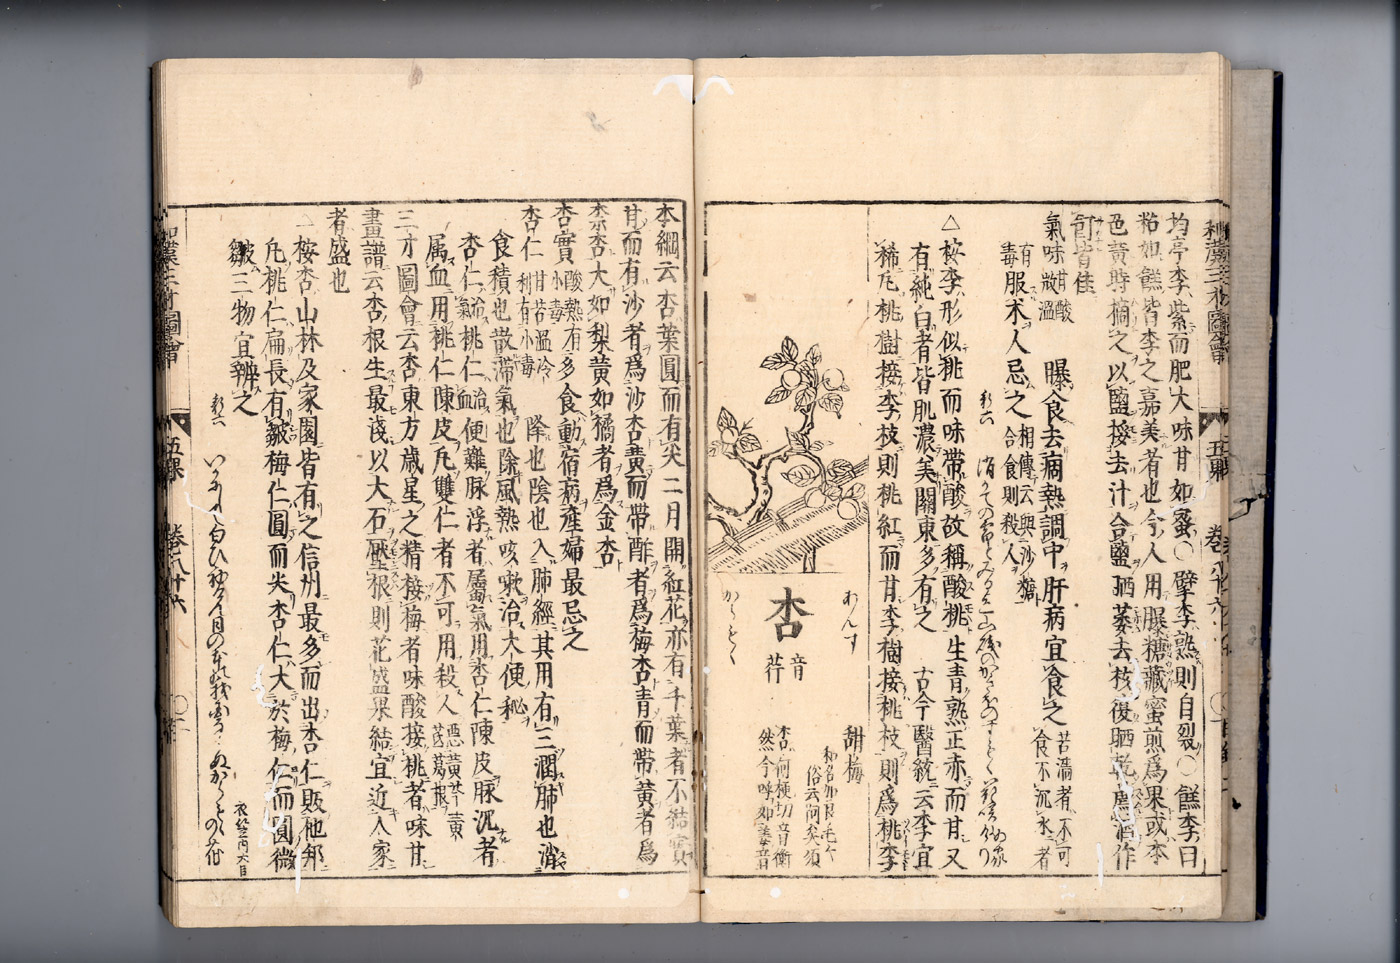 均亭李紫而肥大味甘如蜜○擘李熟則自裂○餻李曰
粘如餻皆李之嘉美者也今人用曝糖藏蜜煎爲果或李
色黄時摘之以鹽挼去汁合鹽晒萎去核復晒乾爲酒作
飣皆佳
氣味
甘酸
微溫
曝食去痼熱調中肝病宜食之
苦濇者不可
食不沉水者
有
毒
服术人忌之
相傳云與沙糖
合食則殺人
△按李形似桃而味帶酸故稱酸桃生青熟正赤而甘又
有純白者皆肌濃美關東多有之 古今醫統云李宜
稀凡桃樹接李枝則桃紅而甘李樹接桃枝則爲桃李
あんず
杏
音
荇
からもゝ
甜梅
和名加良毛々
俗云阿美須
杏何梗切音衡
然今呼如姜音
本綱云杏葉圓而有尖二月開紅花亦有千葉者不結實
甘而有沙者爲沙杏黄而帶酢者爲梅杏青而帶黄者爲
柰杏大如梨黄如橘者爲金杏
杏實
酸熱有
小毒
多食動宿病產婦最忌之
杏仁
甘苦溫冷
利有小毒
降也陰也入肺經其用有三潤肺也消
食積也散滯氣也除風熱咳嗽治大便秘
杏仁
治
氣
桃仁
治
血
便難脉浮者屬氣用杏仁陳皮脉沉者
屬血用桃仁陳皮凡雙仁者不可用殺人
惡黄芩黄
茋葛根
三才圖會云杏東方歳星之精接梅者味酸接桃者味甘
畫譜云杏根生最淺以大石壓根則花盛果結宜近人家
者盛也
一按杏山林及家園皆有之信州最多而出杏仁販他邦
凡桃仁扁長有皺梅仁圓而尖杏仁大於梅仁而圓微
皺三物宜辨之
和漢三才圖會
五果
卷八十六